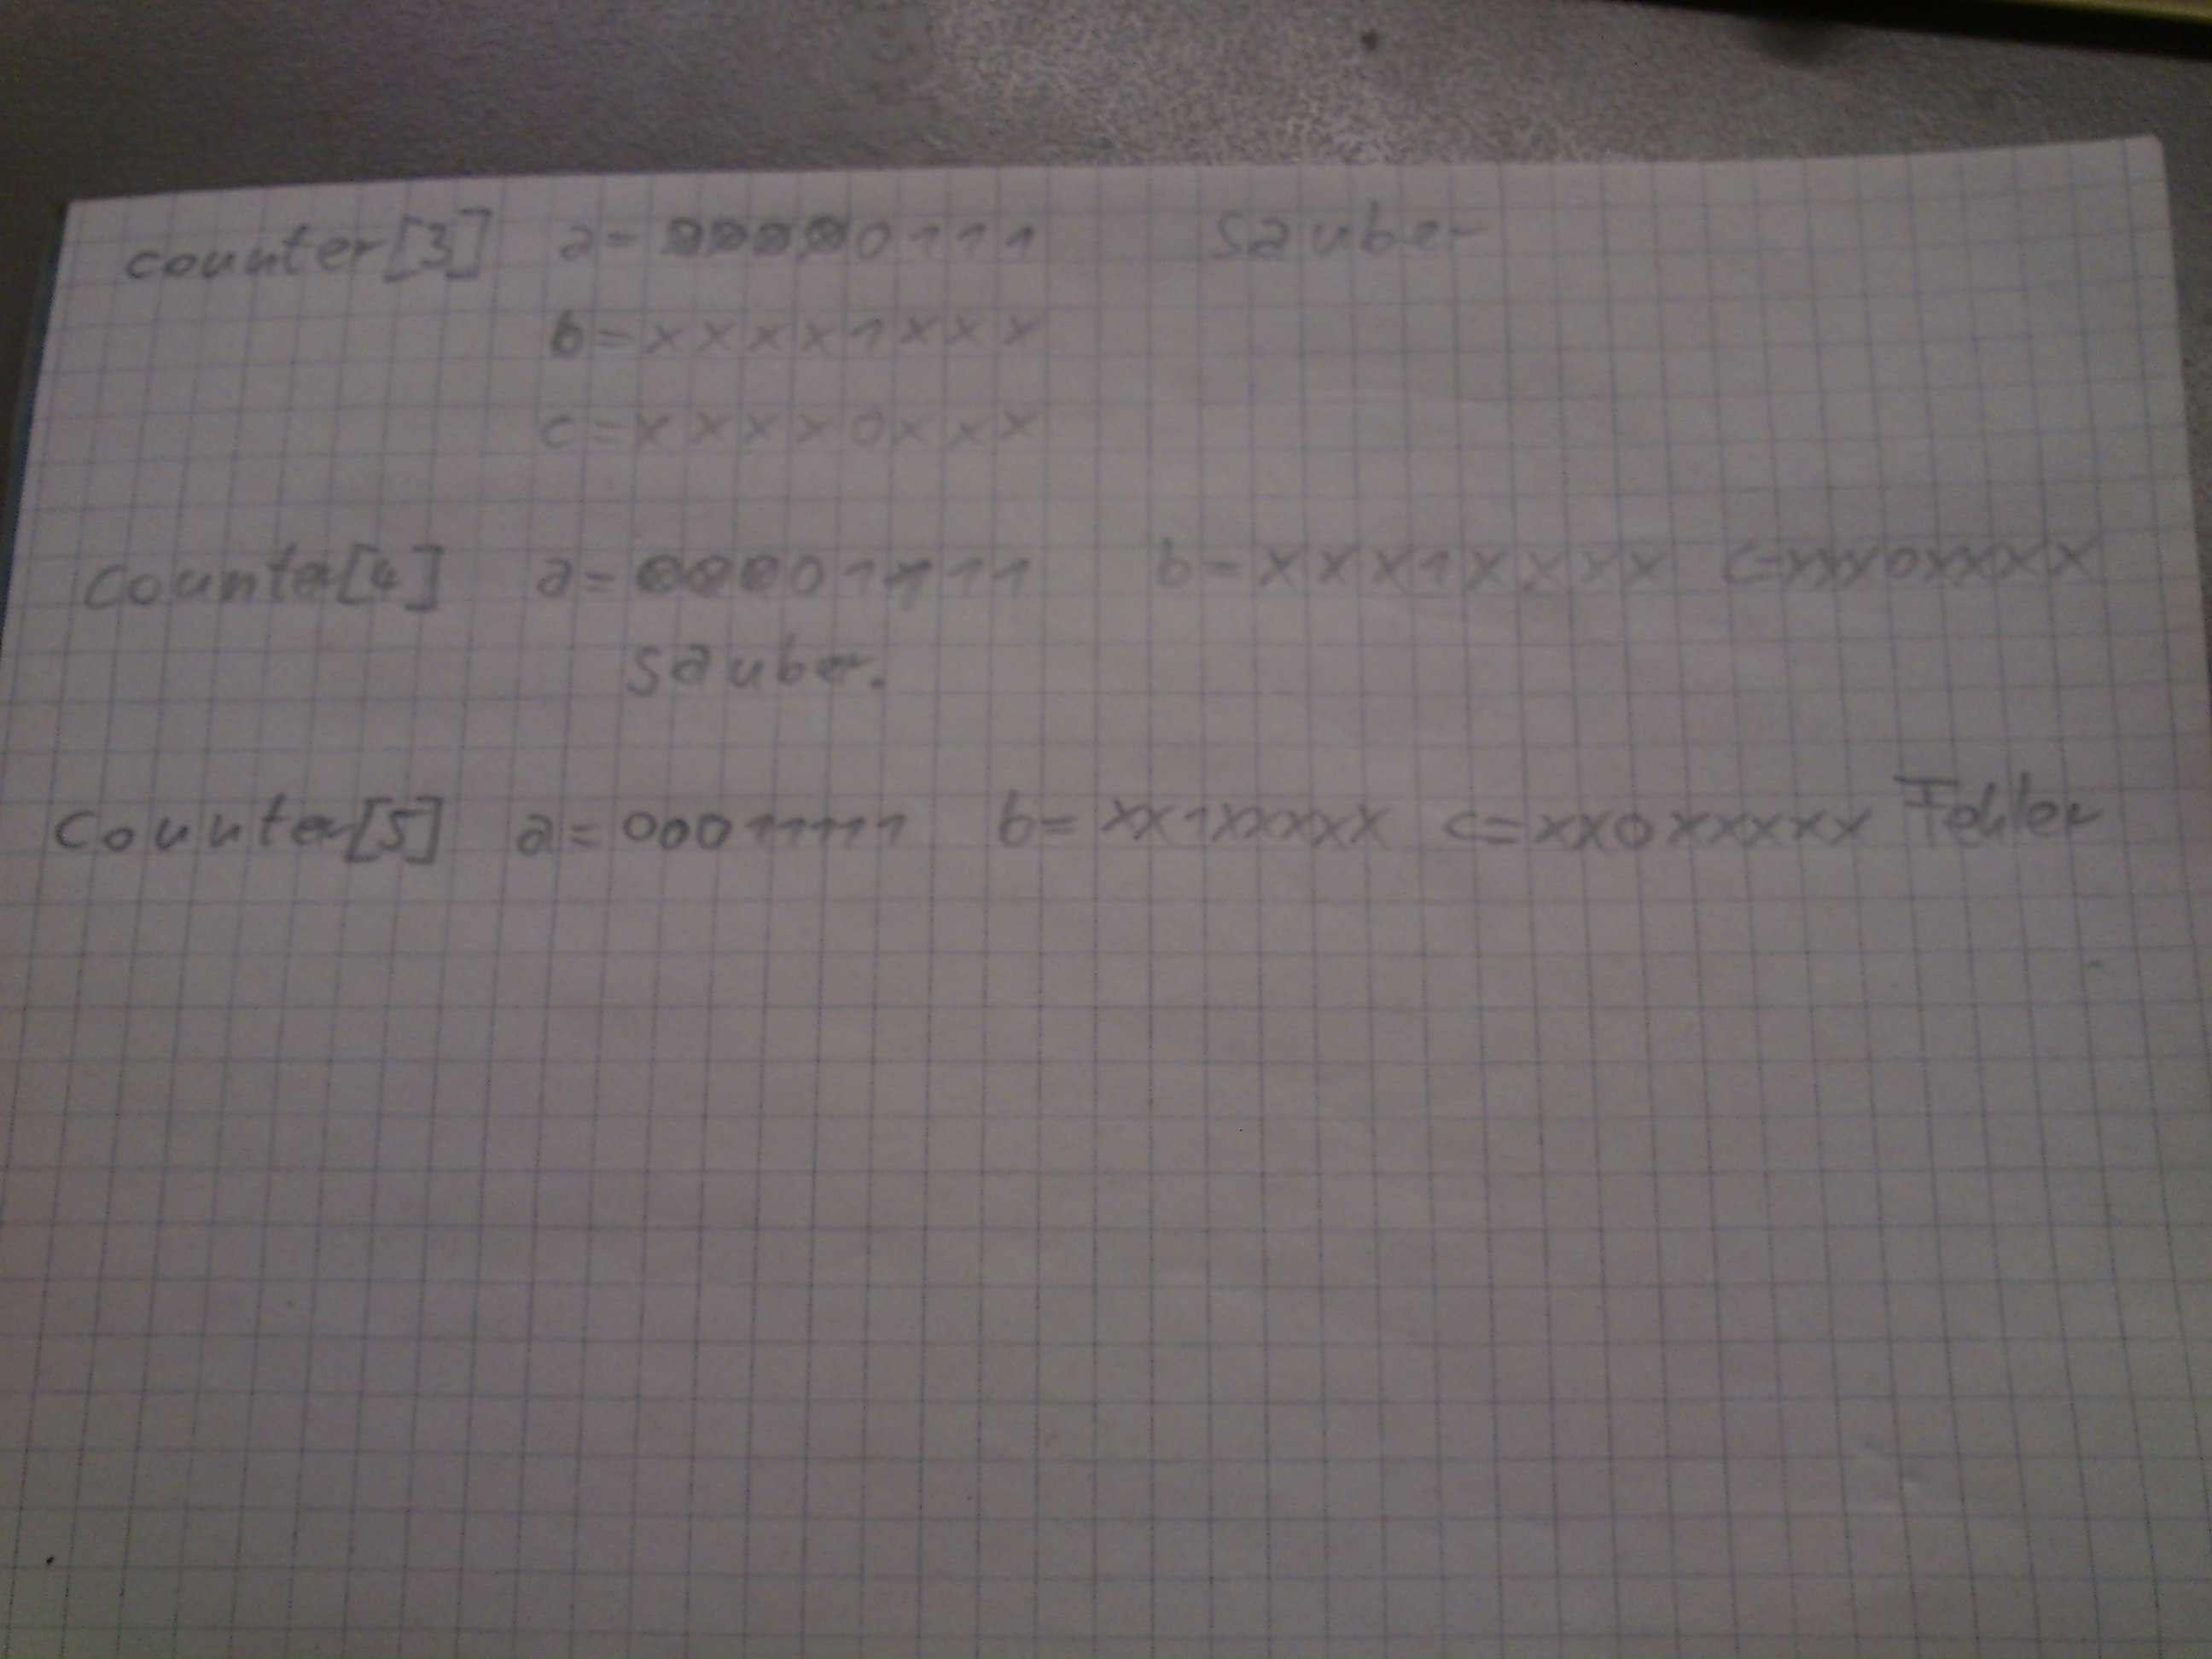 counter[3] a=00000111 sauber
b=xxxx1xxx
c=xxxx0xxx
counter[4] a=00001111 b=xxx1xxxx c=xxx0xxxx
sauber.
counter[5] a=00011111 b=xx1xxxxx c=xx0xxxxx Fehler